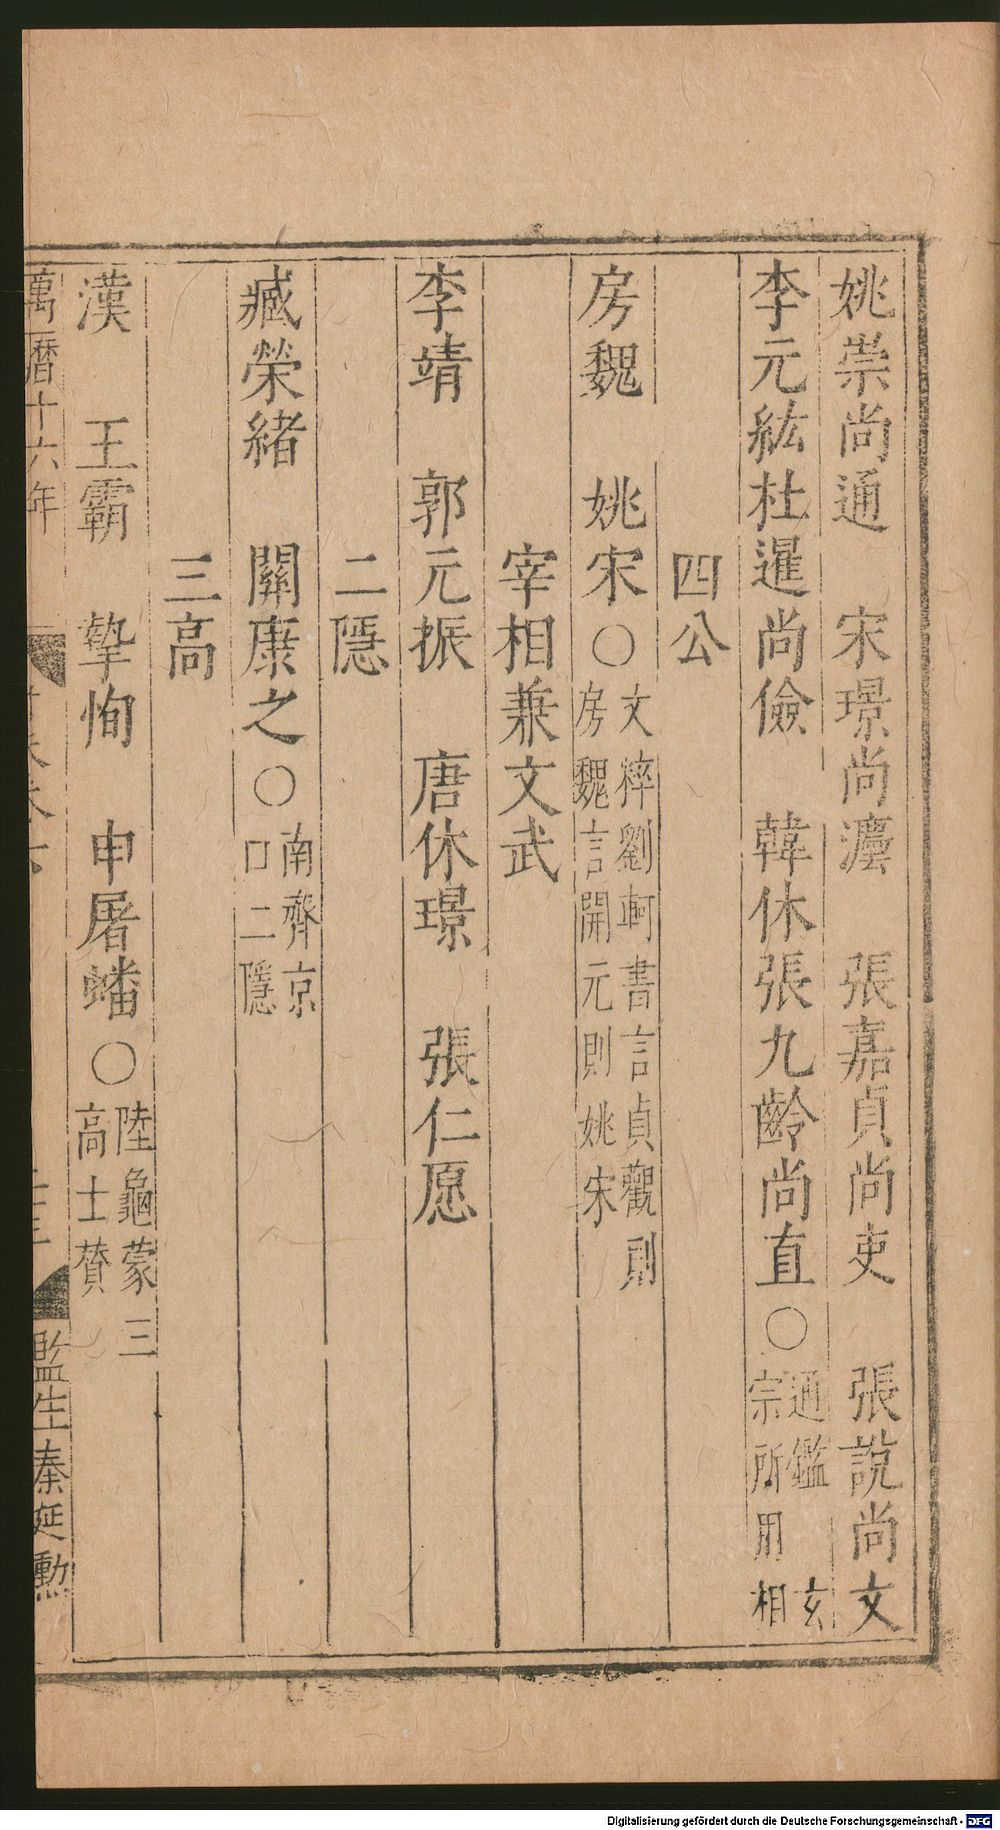 姚崇尚通　宋璟尚灋　張嘉貞尚吏　張說尚文
李元紘杜暹尚儉　韓休張九齡尚直○通鑑玄宗所用相
四公
房魏　姚宋○文粹劉軻書言貞觀則房魏言開元則姚宋
宰相兼文武
李靖　郭元振　唐休璟　張仁愿
二隱
臧榮緒　關康之○南齊京口二隱
三高
漢　王霸　摯恂　申屠蟠○陸龜蒙三高士贊
萬曆十六年
監生秦延勳
Digitalisierung gefördert durch die Deutsche Forschungsgemeinschaft - DFG